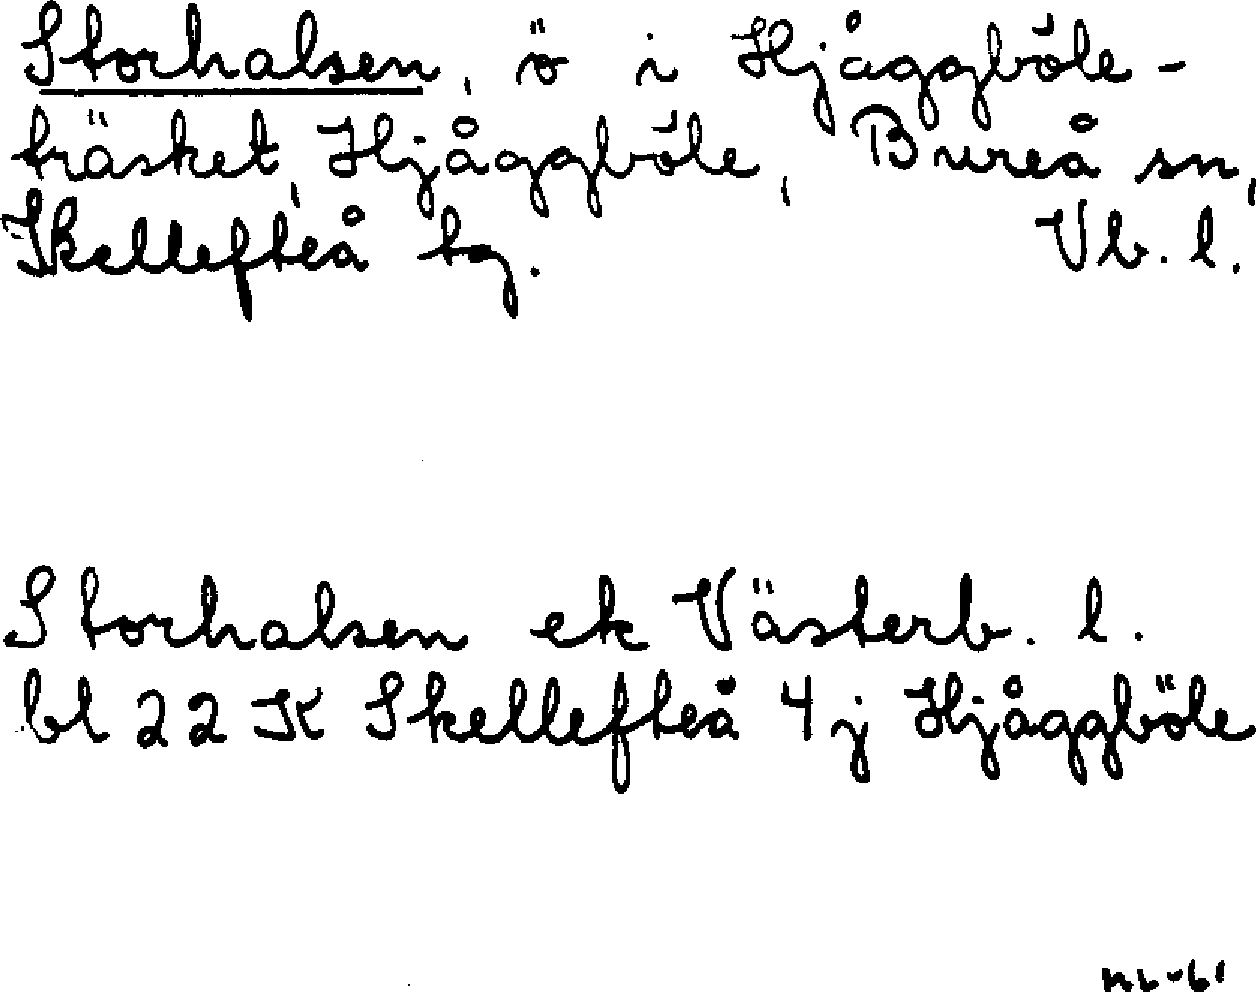 Storhalsen, ö i Hjåggböle-
träsket, Hjåggböle, Bureå sn,
Skellefteå tg. Vb. l.
Storhalsen ek Västerb. l.
bl 22 K Skellefteå 4j Hjåggböle